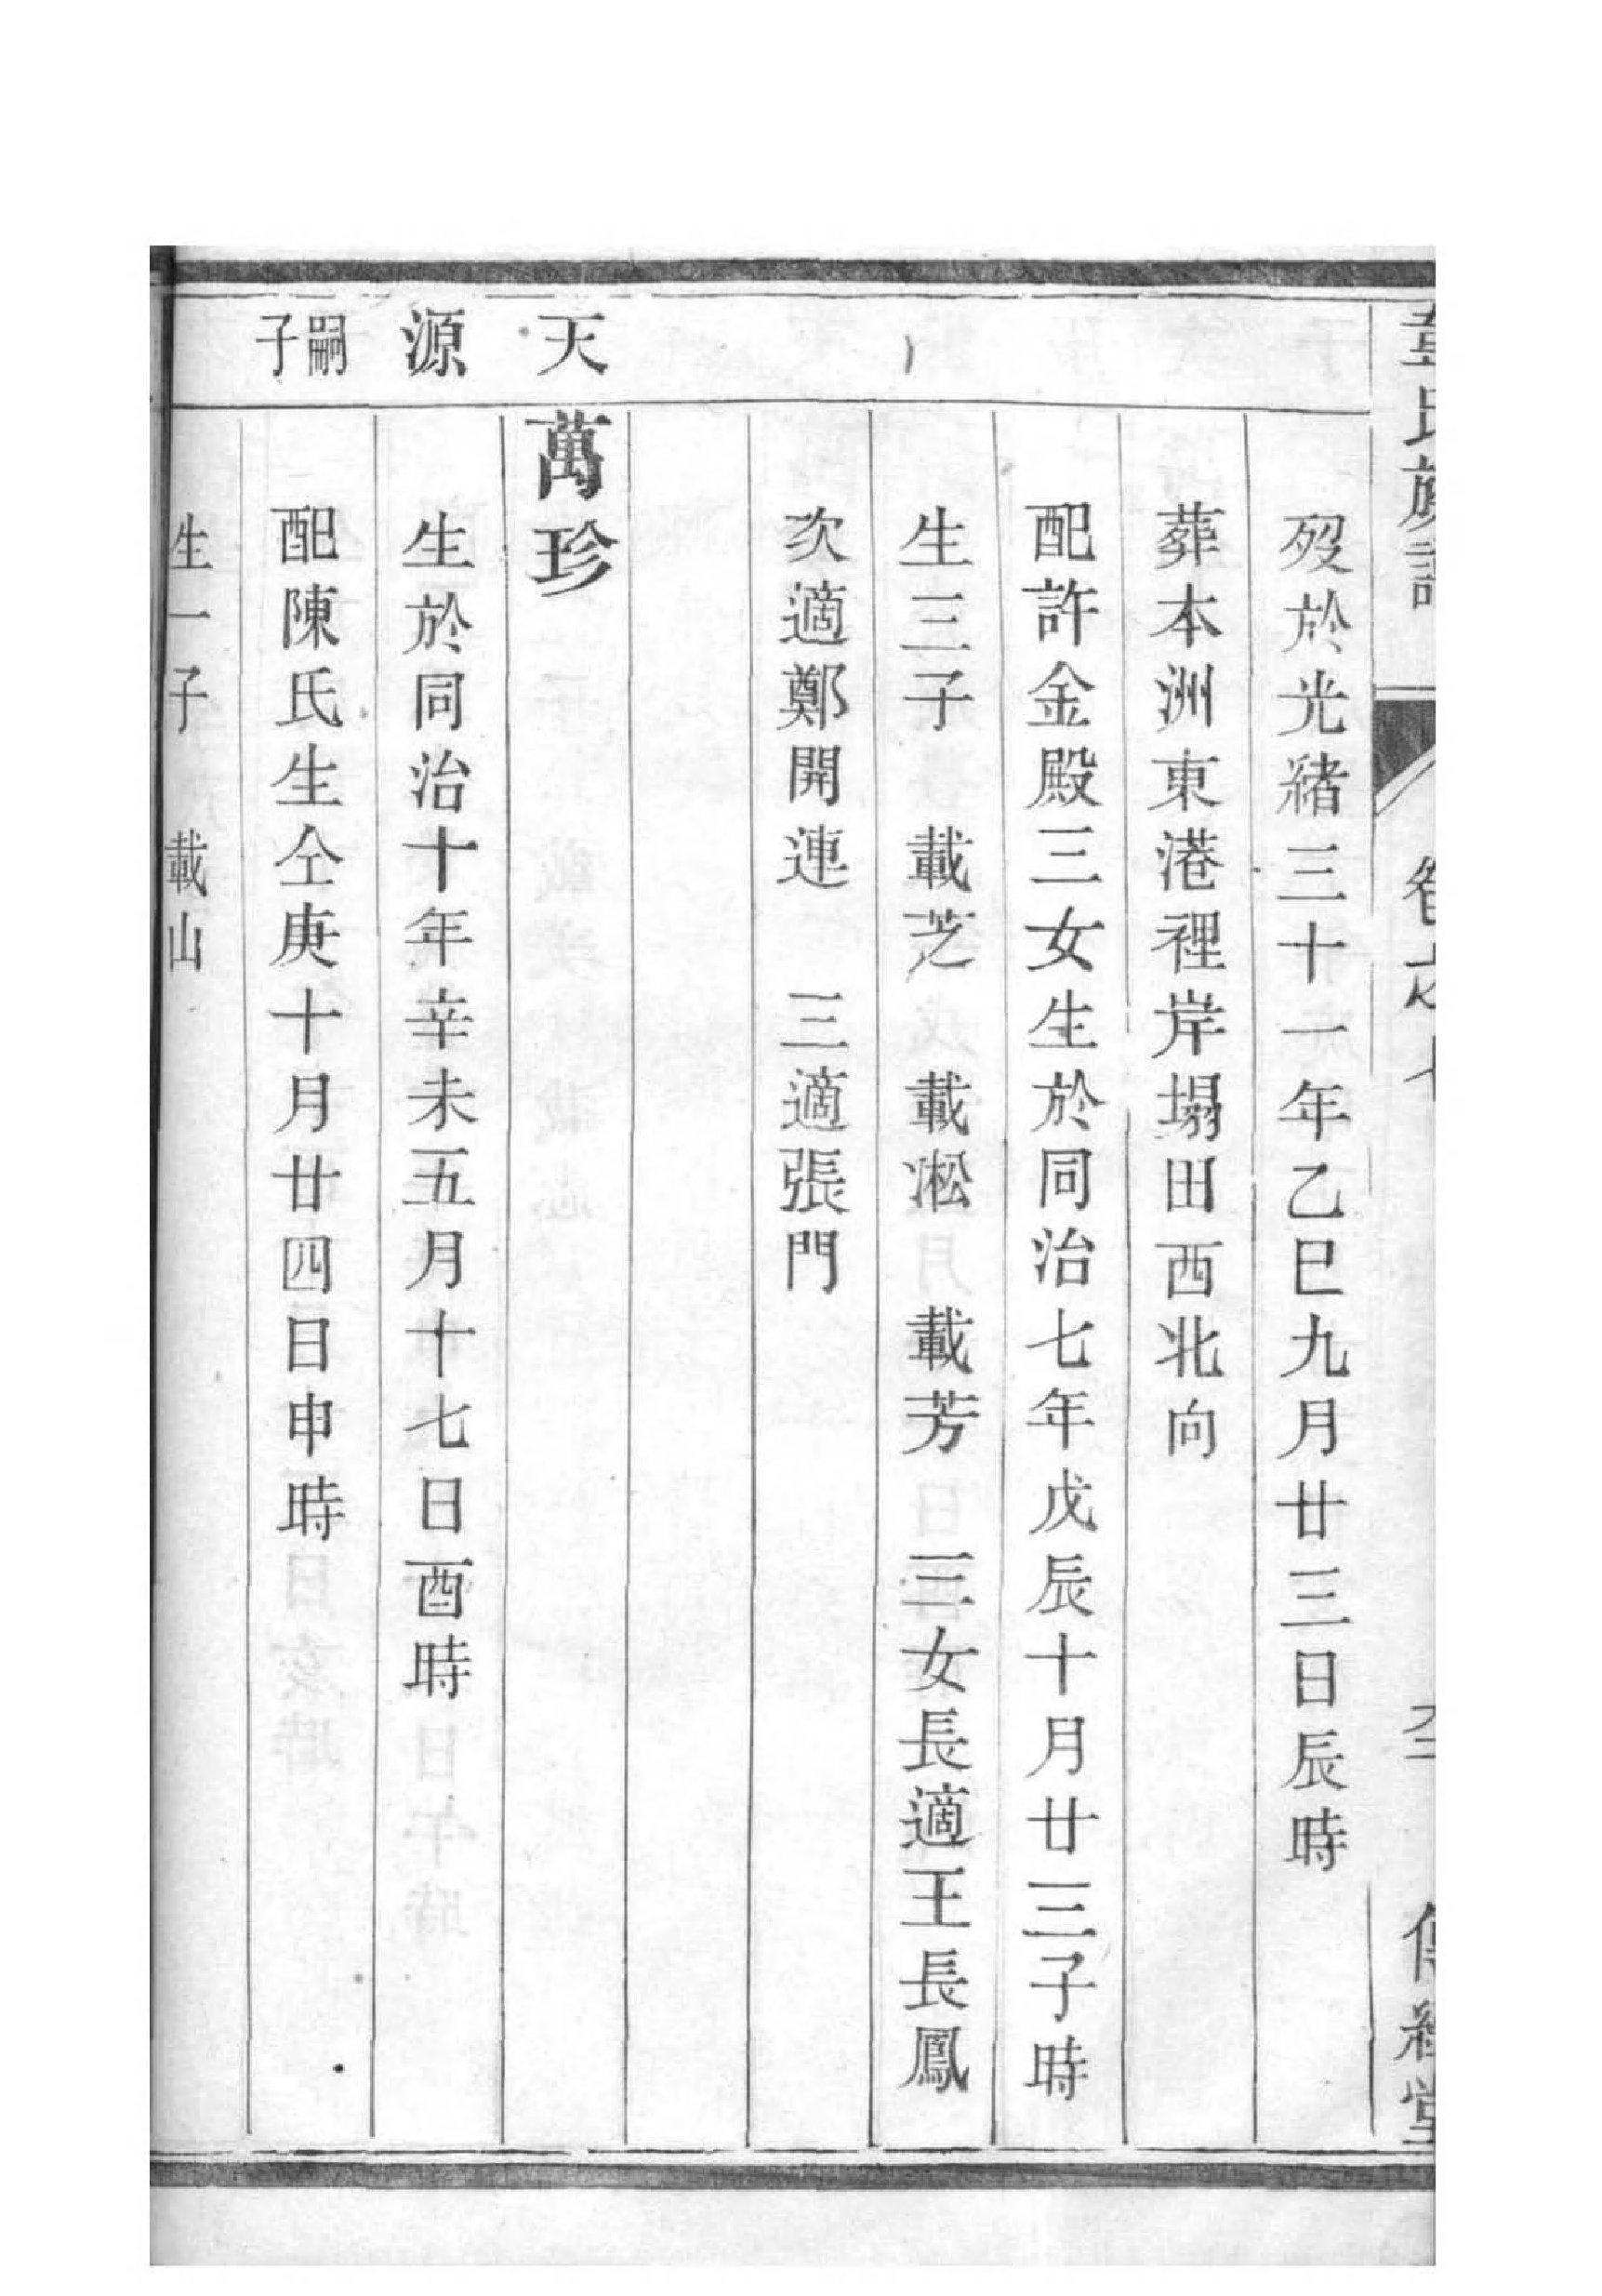 氏族譜
歿於光緒三十一年乙巳九月廿三日辰時
葬本洲東港裡岸塌田西北向
配許金殿三女生於同治七年戊辰十月廿三子時
生三子 載芝 載淞 載芳 三女長適王長鳳
次適鄭開連 三適張門
天 萬珍
源 生於同治十年辛未五月十七日酉時
嗣子 配陳氏生仝庚十月廿四日申時
生一子 載山